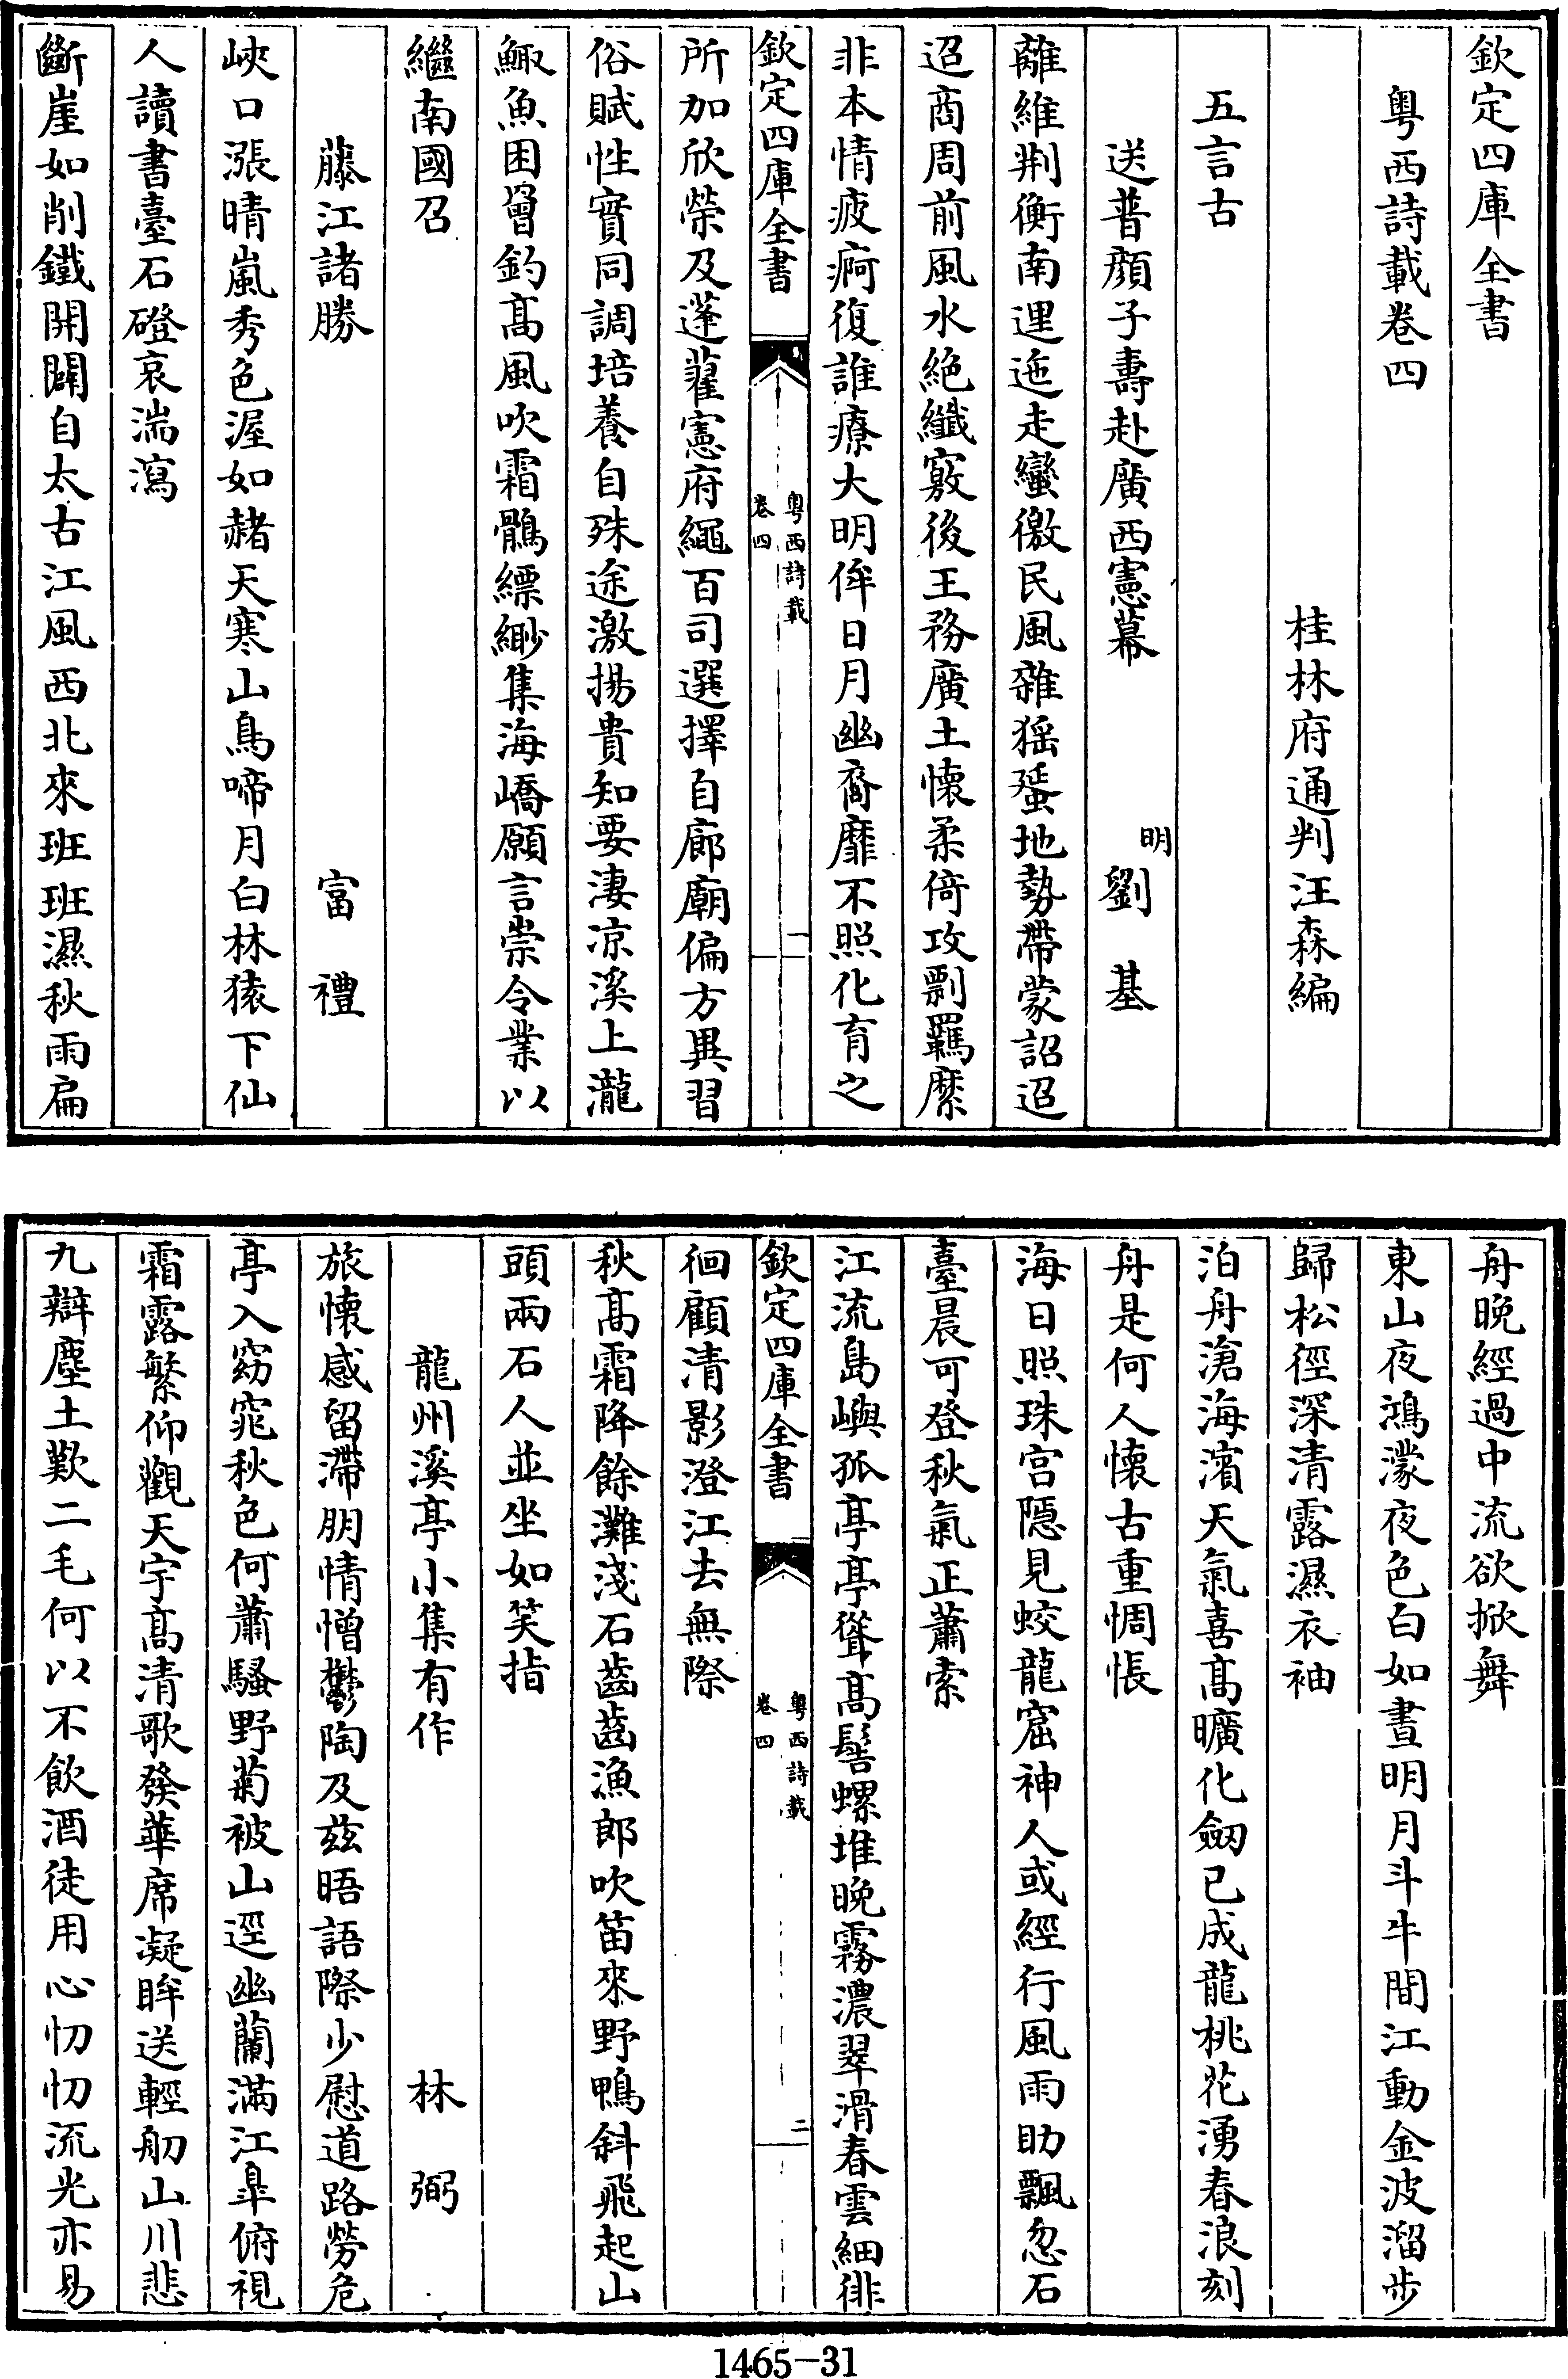 欽定四庫全書
粤西詩載卷四
桂林府通判汪森編
五言古
送普顔子壽赴廣西憲幕
明劉基
離維荆衡南邐迤走蠻徼民風雜猺蜑地勢帶蒙詔迢
迢商周前風水絶纖竅後王務廣土懷柔倚攻剽羈縻
非本情疲痾復誰療大明侔日月幽裔靡不照化育之
欽定四庫全書
粤西詩載
卷四
一
所加欣榮及蓬藋憲府繩百司選擇自廊廟偏方異習
俗賦性實同調培養自殊途激揚貴知要淒凉溪上瀧
鯫魚困罾釣高風吹霜鶻縹緲集海嶠願言崇令業以
繼南國召
藤江諸勝
富禮
峽口漲晴嵐秀色渥如赭天寒山鳥啼月白林猿下仙
人讀書臺石磴哀湍瀉
斷崖如削鐵開闢自太古江風西北來班班濕秋雨扁
舟晚經過中流欲掀舞
東山夜鴻濛夜色白如晝明月斗牛間江動金波溜步
歸松徑深清露濕衣袖
泊舟滄海濱天氣喜高曠化劔已成龍桃花湧春浪刻
舟是何人懷古重惆悵
海日照珠宫隱見蛟龍窟神人或經行風雨助飄忽石
臺晨可登秋氣正蕭索
江流島嶼孤亭亭聳高髻螺堆晚霧濃翠滑春雲細徘
欽定四庫全書
粤西詩載
卷四
二
徊顧清影澄江去無際
秋高霜降餘灘淺石齒齒漁郎吹笛來野鴨斜飛起山
頭兩石人並坐如笑指
龍州溪亭小集有作
林弼
旅懷感留滯朋情憎鬱陶及兹晤語際少慰道路勞危
亭入窈窕秋色何蕭騷野菊被山逕幽蘭滿江臯俯視
霜露繁仰觀天宇高清歌發華席凝眸送輕舠山川悲
九辯塵土歎二毛何以不飲酒徒用心忉忉流光亦易
1465-31